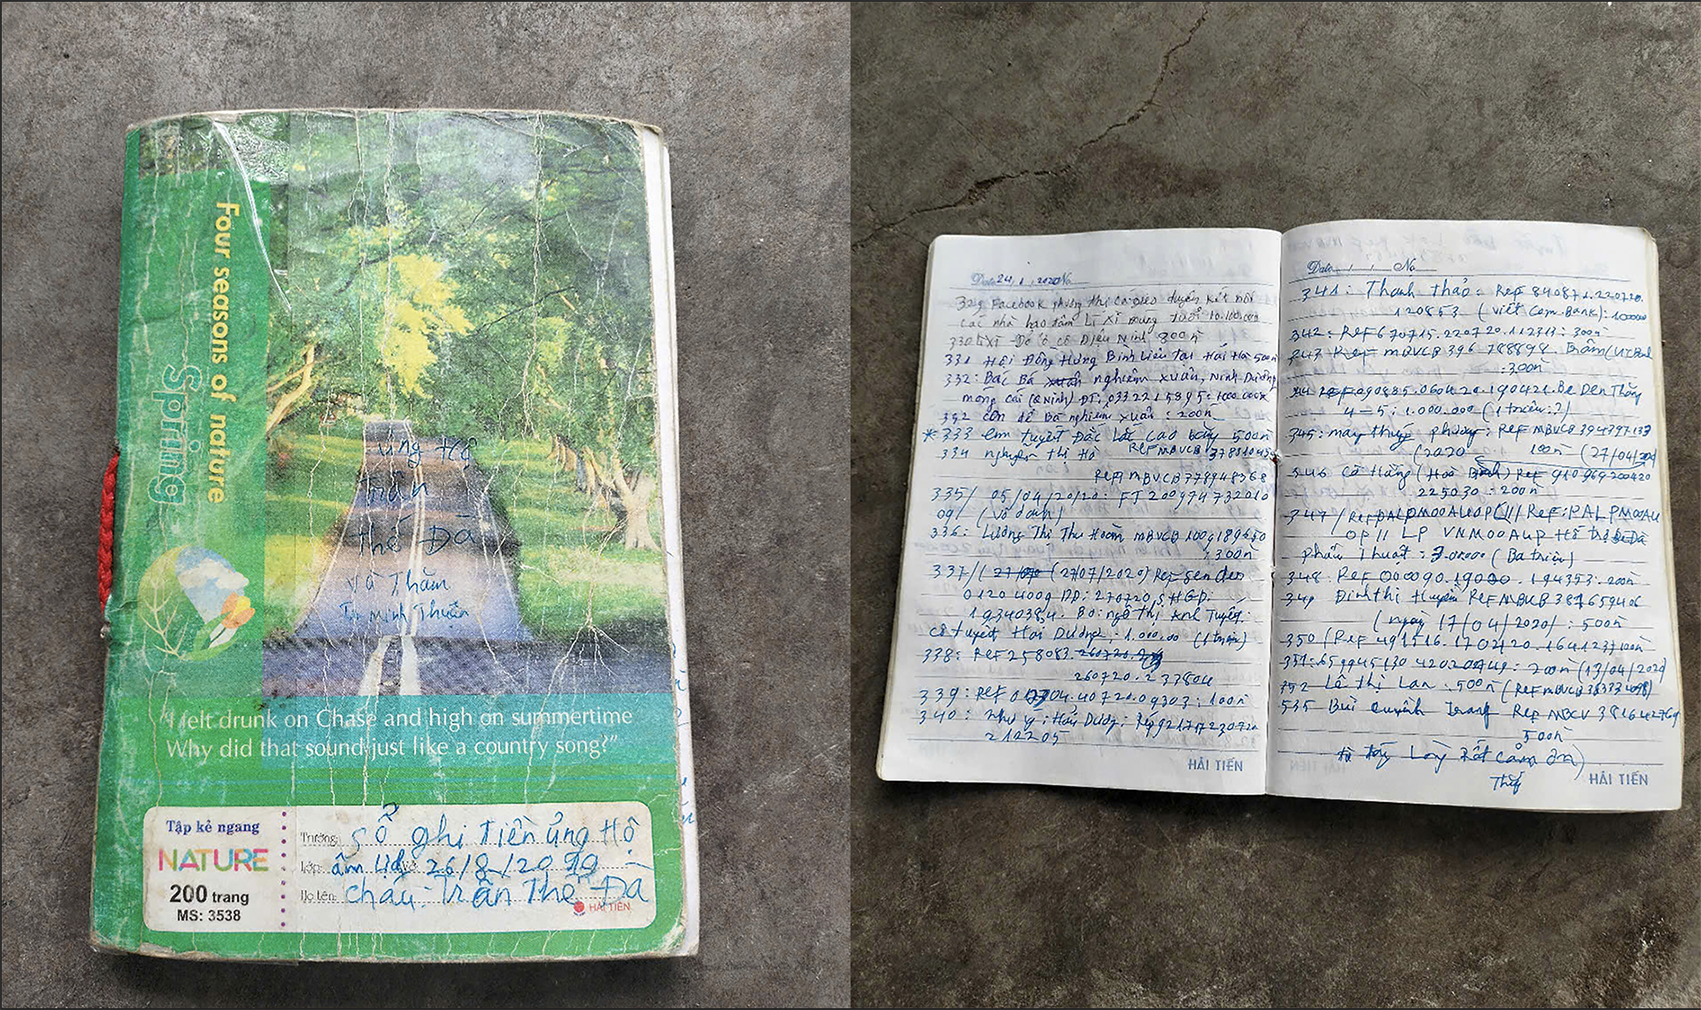 Four seasons of nature
Spring
ủng Hộ
trần
thế Đà
và Thăm
Minh Thuận
"I felt drunk on Chase and high on summertime
Why did that sound just like a country song?"
Tập kẻ ngang
NATURE
200 trang
MS: 3538
Trường: Sổ ghi Tiền ủng Hộ
Lớp: âm lịch 26/8/2019
Họ tên: cháu: Trần Thế Đà
HẢI TIẾN
Date 24, 1, 2020 No
329 Facebook
các nhà hảo tâm Lì Xì mừng tuổi 10.100.000
330 Lì Xì Đỏ ô cô Diệu Ninh 300n
331 Hội Đồng Hưng Bình Liêu tại Hải Hà 500n
332: Bác Bá nghiêm xuân, Ninh Dương
móng cái (Q Ninh) ĐT: 0332215895: 1000.000
332 con dể Bá nghiêm xuân: 200n
* 333 em tuyết Đắc Lắc cao bằng 500n
334 nguyễn thị Hà Ref MBVCB
Ref MBVCB 778948568
335/ 05/04/2020: FT 200974732010
09/ (Vô danh)
336: Lường Thị Thu Hoàm MBVCB
: 300n
337/ (27/07/2020) Ref sen den
0120400g DD: 270720, SHGD:
19340384. Bo: ngô Thị Ánh Tuyết
cô tuyết Hải Dương: 1.000.000 (1 triệu)
338: Ref 258083.
260720.237804
339: Ref 040721.09303: 100n
340: như ý: Hải Dương: Ref
212205
HẢI TIẾN
Date / / No
341: Thanh thảo: Ref 840871.220720.
120853 (Viết Com Bank): 100000
342: REF 670715.220720.112313: 300n
343 Ref MBVCB 396 788898. Trâm
: 300n
344 Ref 090885.060420.190421. Be Den Thắng
4-5: 1.000.000 (1 triệu:?)
345: may thuý phương: Ref MBVCB 394797133
(2020 100n (27/04/20)
346 Cô Hằng (Hoà Bình) Ref 910969200420
225030: 200n
347/ Ref: PALPMOOAU
OP // LP VNM00AUP Hỗ trợ Đà
phẩu Thuật: 3.00000 (Ba triệu)
348: Ref 000090.190. 194353: 200n
349 Đinh thị Huyền Ref MBVCB 387659406
(ngày 17/04/2020): 500n
350 (Ref 491516.170420.164123: 100n
351: 659945130 42020749: 200n (13/04/2020)
352 Lê Thị Lan: 500n (Ref MBVCB
535 Bùi quỳnh Trang Ref MBCV 381642769
500n
Lòng Rất cảm ơn)
HẢI TIẾN